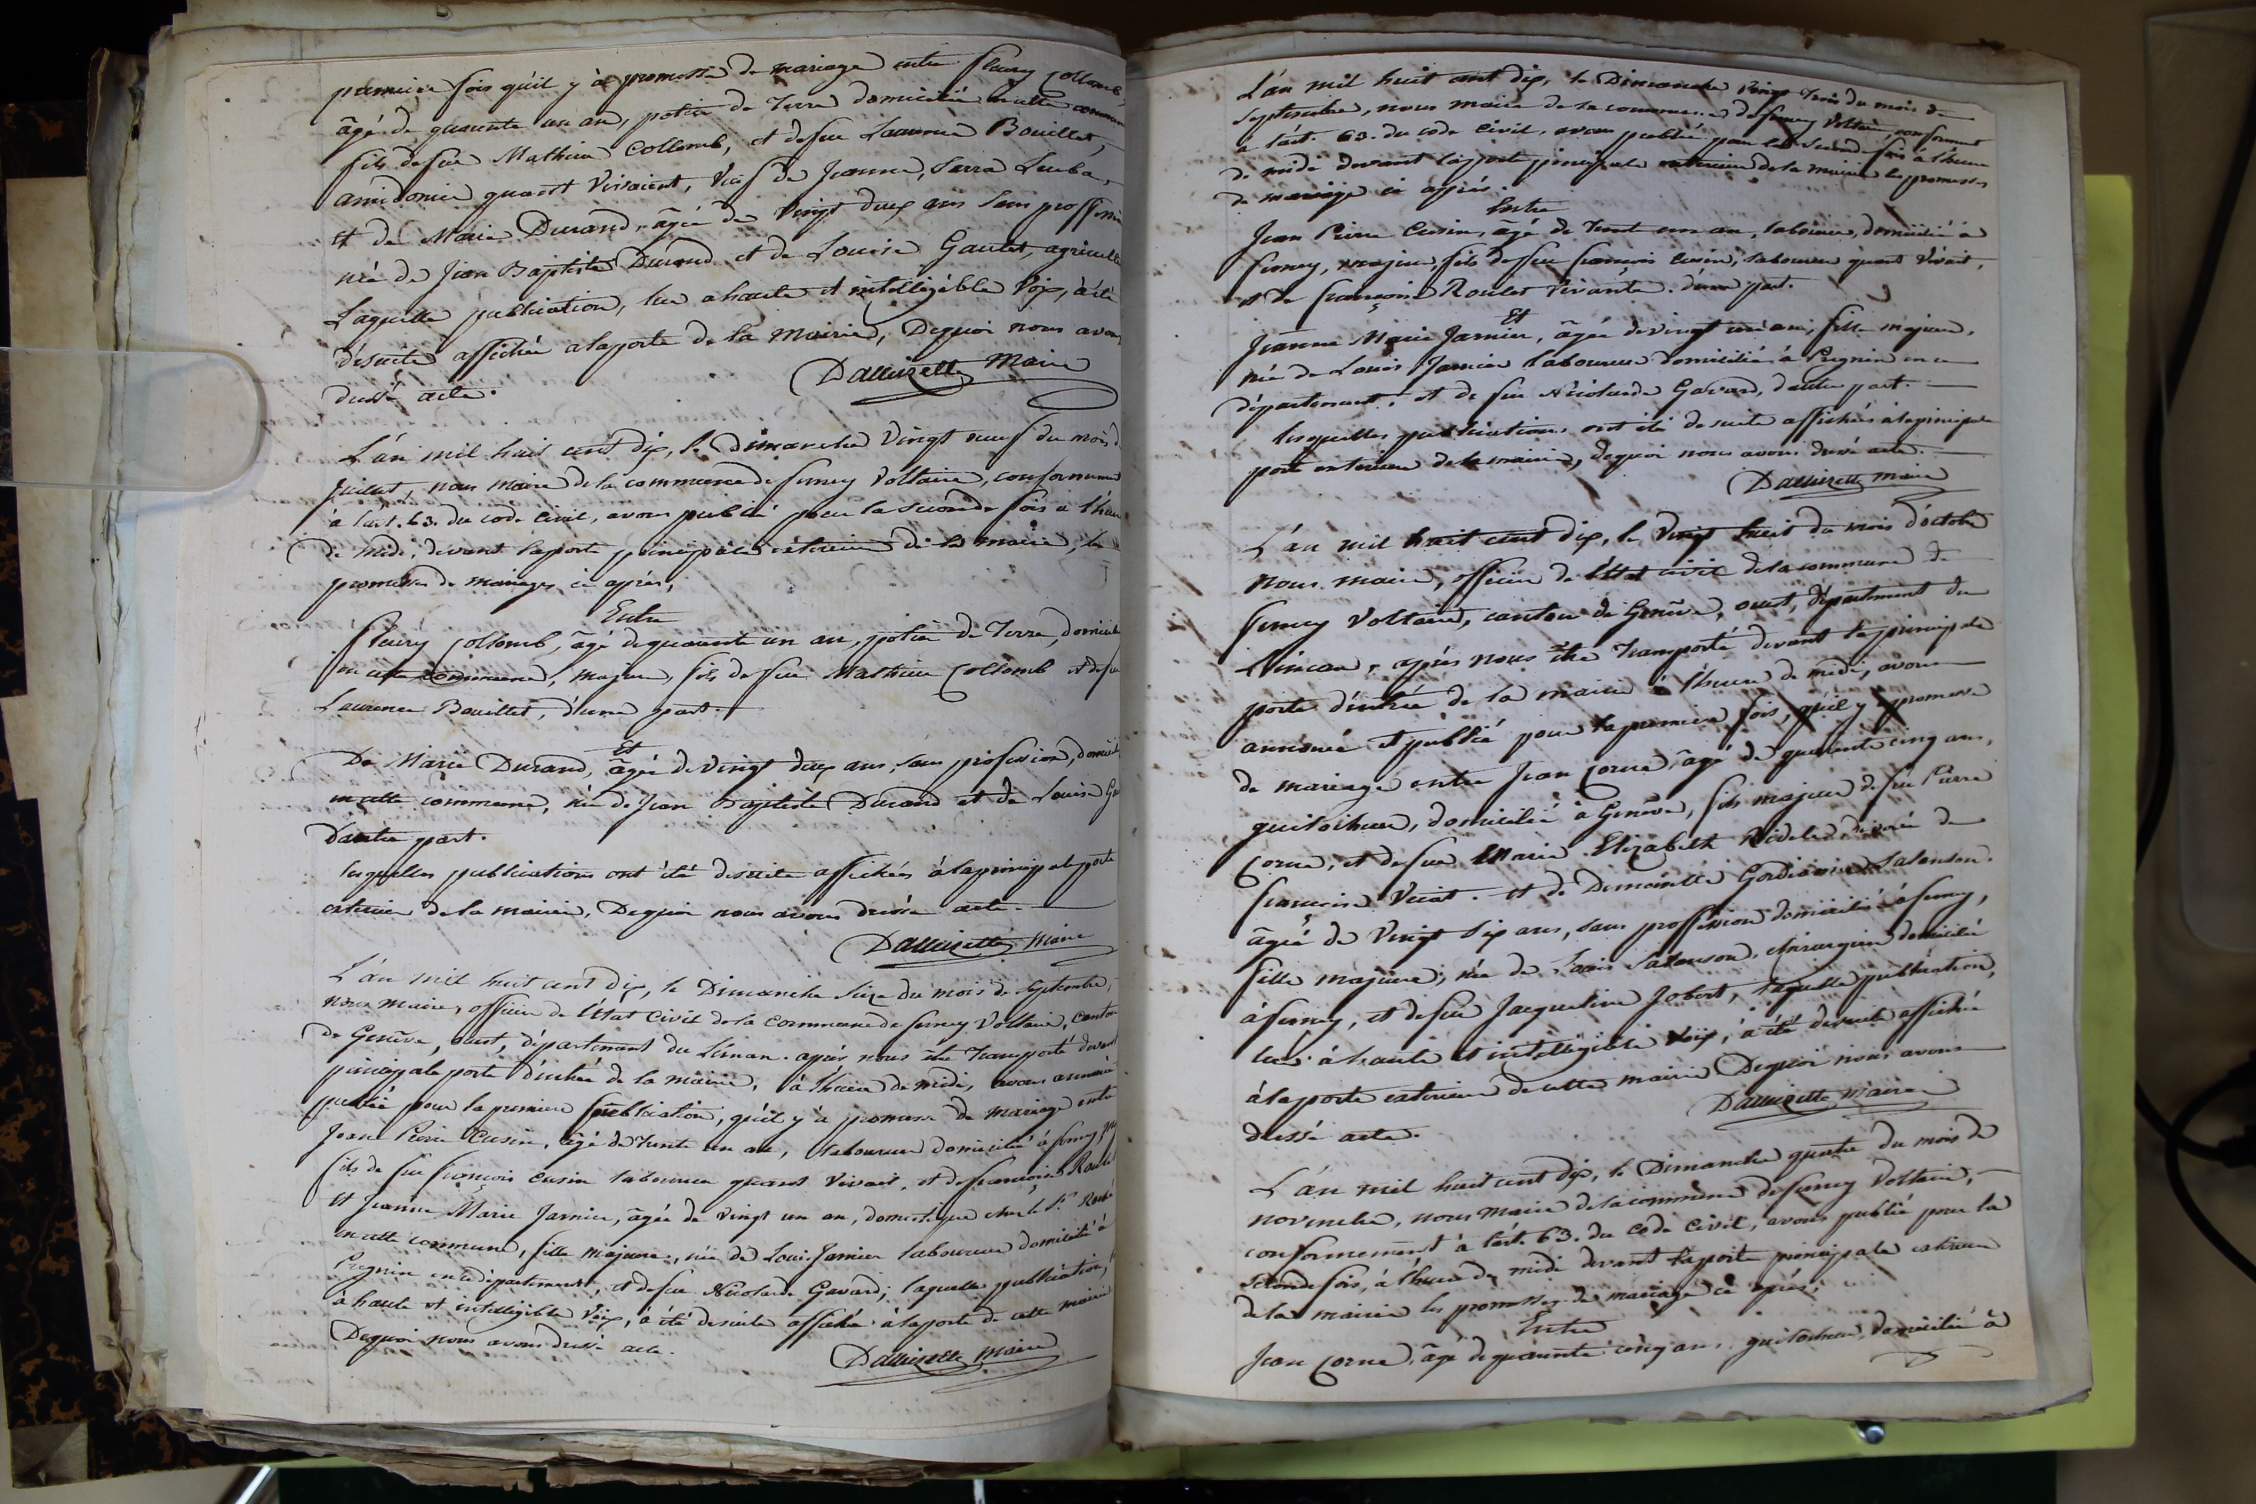 premiere fois qu'il y à promesse de mariage entre fleury Collomb,
âgé de quarente un an, potier de Terre domicilié en cette commune
fils de feu Mathieu Collomb, et de feu Laurence Bouillet,
amidonier quant vivaient, veuf de Jeanne, Serra Leuba,
et de Marie Durand, âgée de vingt deux ans sans proffession
née de Jean Baptiste Durand et de Louise Gaulet, agriculte
Laquelle publication, lue a haute et intelligible voix, à été
desuite affichée a laporte de la Mairie, Dequoi nous avons
dressé acte.
Dallizette Maire
L'an mil huit cent dix, le Dimanche vingt neuf du mois d
Juillet, nous maire de la commune de ferney Voltaire, conformement
à l'art. 63. du code civil, avons publié pour la seconde fois à l'heure
de midi, devant laporte principale exterieure de la mairie, les
promesses de mariages ci après,
Entre
fleury Collomb, âgé de quarente un an, potier de Terre, domicilié
en cette commune, majeur, fils de feu Mathieu Collomb et de feu
Laurence Bouillet, d'une part.
Et
De Marie Durand, âgée de vingt deux ans, sans profession, domicil
en cette commune, née de Jean Baptiste Durand et de Louise Ga
Dautre part.
lesquelles publications ont été desuite affichées à la principale porte
exterieure de la mairie, Dequoi nous avons dressé acte.
Dallizette Maire
L'an mil huit cent dix, le Dimanche seize du mois de Septembre,
nous maire, officier de l'état civil de la commune de ferney Voltaire, canton
de Genêve, ouest, département du Léman. après nous être transporté devant
principale porte d'entrée de la mairie, à l'heure de midi, avons annoncé
publié pour la premiere publication, qu'il y à promesse de mariage entre
Jean Pierre Cusin, âgé de trente un an, laboureur domicilié à ferney
fils de feu françois Cusin laboureur quant vivait, et de françoise Roulet
et Jeanne Marie Jarnier, âgée de vingt un an, domestique chez le Sr.
en cette commune, fille majeure, née de Louis Jarnier laboureur domicilié à
Pregnin en ce département, et de feu Nicolarde Gavard; laquelle publication,
à haute et intelligible voix, à été desuite affichée à laporte de cette mairie
Dequoi nous avons dressé acte.
Dallizette Maire
L'an mil huit cent dix, le Dimanche vingt trois du mois de
septembre, nous maire de la commune de ferney Voltaire, conformement
à l'art. 63. du code civil, avons publié pour la seconde fois à l'heure
de midi devant laporte principale exterieure de la mairie les promesses
de mariage ci après.
Entre
Jean Pierre Cusin, âgé de trent un an, laboureur, domicilié à
ferney, majeur, fils de feu francois Cusin, laboureur quant vivait,
et de françoise Roulet vivante. d'une part.
Et
Jeanne Marie Jarnier, âgée de vingt un an, fille majeure,
née de Louis Jarnier laboureur domicilié à Pregnin en ce
département, et de feu Nicolarde Gavard, d'autre part.
lesquelles publications ont été desuite affichées à la principale
porte exterieure de la mairie, dequoi nous avons dressé acte.
Dallizette Maire
L'an mil huit cent dix, le vingt huit du mois d'octobre
nous maire, officier de l'état civil de la commune de
ferney Voltaire, canton de Genêve, ouest, département du
Léman, après nous être Transporté devant la principale
porte d'entrée de la mairie à l'heure de midi, avons
annoncé et publié pour la premiere fois, qu'il y à promesse
de mariage entre Jean Corne, âgé de quarente cinq ans,
guilocheur, domicilié à Genêve, fils majeur de feu Pierre
Corne, et de feu Marie Elizabeth divorcé de
françoise Vicat. et de Demoiselle Salenson.
âgée de vingt six ans, sans proffession domiciliée à ferney,
fille majeure, née de Louis Salenson, chirurgien domicilié
à ferney, et de feu Jacqueline Jobert, laquelle publication,
lue à haute et intelligible voix, à été desuite affichée
à laporte exterieure de cette mairie Dequoi nous avons
dressé acte.
Dallizette Maire
L'an mil huit cent dix, le Dimanche quatre du mois de
novembre, nous maire de la commune de ferney Voltaire,
conformement à l'art. 63. du code civil, avons publié pour la
seconde fois, à l'heure de midi devant laporte principale exterieure
de la mairie les promesses de mariage ci après,
Entre
Jean Corne, âgé de quarente cinq ans, guilocheur, domicilié à